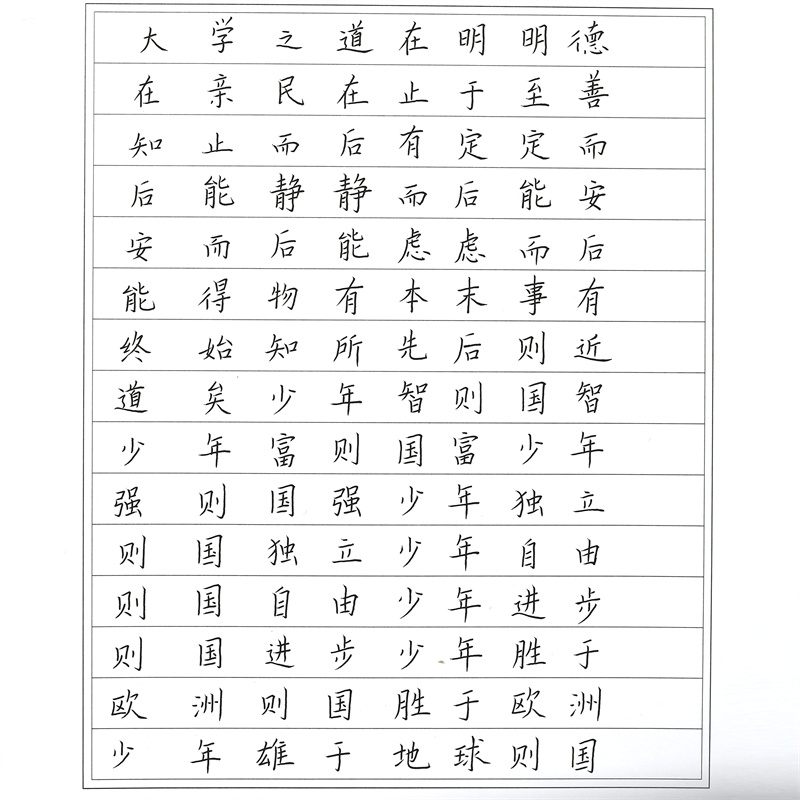 大学之道在明明德
在亲民在止于至善
知止而后有定定而
后能静静而后能安
安而后能虑虑而后
能得物有本末事有
终始知所先后则近
道矣少年智则国智
少年富则国富少年
强则国强少年独立
则国独立少年自由
则国自由少年进步
则国进步少年胜于
欧洲则国胜于欧洲
少年雄于地球则国